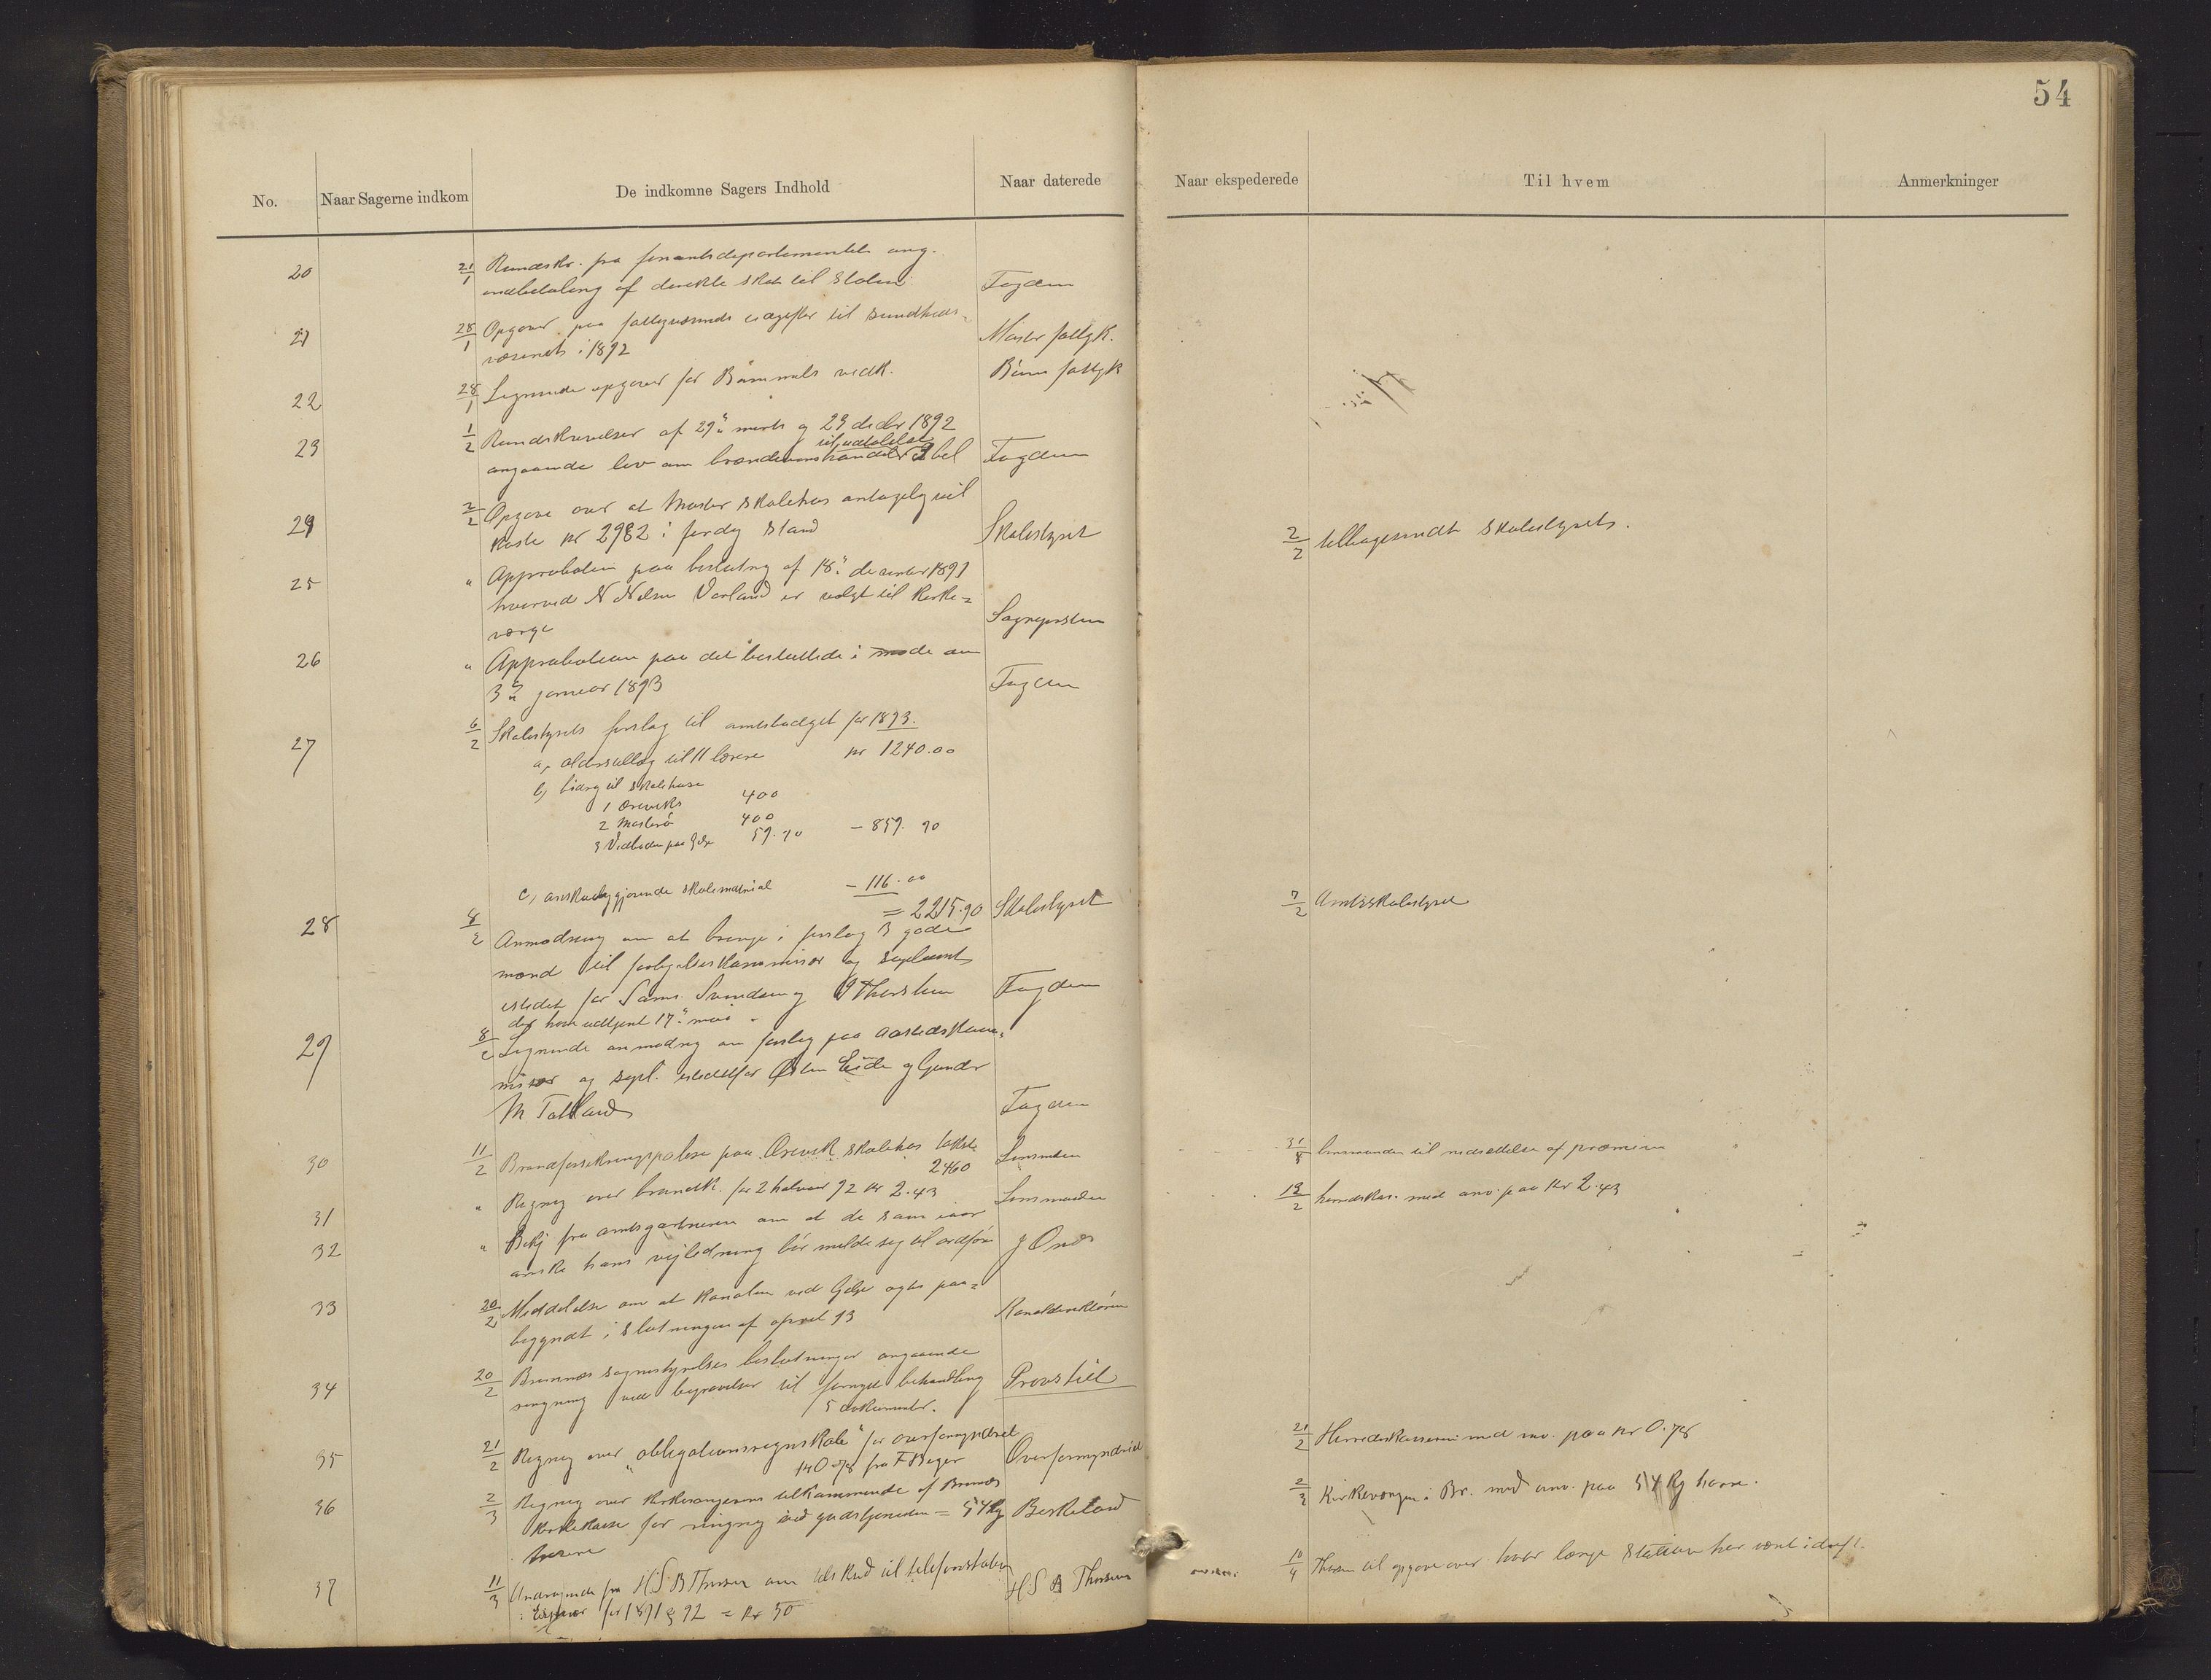 54
No.
Naar Sagerne indkom
De indkomne Sagers Indhold
Naar daterede
Naar ekspederede
Til hvem
Anmerkninger
20 21/1 Rundskr. fra finantsdepartementet ang.
indbetaling af direkte skat til staten Fogden
21 28/1 Opgaver paa fattigvæsenets udgifter til sundheds-
væsenet i 1892 Moster fattigk.
22 28/1 Lignende opgaver for Bømmels vedk. Bøm fattigk
23 1/2 Rundskrivelser af 29" marts og 23 decbr 1892
til udtalelse
angaaende lov om brændevinshandel & bel Fogden
24 2/2 Opgave over at Moster skolehus antagelig vil
koste kr 2982 i ferdig stand Skolestyret 2/2 tilbagesendt skolestyret.
25 " Approbation paa beslutning af 18" december 1891
hvorved N Nilsen Vorland er valgt til kirke-
verge Sogneprsten
26 " Approbation paa det besluttede i møde den
3" januar 1893 Fogden
27 6/2 Skolestyrets forslag til amtsbudget for 1893.
a, alderstillæg til 11 lærere kr 1240.00
b, bidrag til skolehuse
1 Ørevik 400
2 Mosterø 400
3 Vedboden paa Gdse 59.90 - 859.90
c, anskueliggjørende skolematerial - 116.00
= 2215.90 Skolestyret 7/2 Amtsskolestyret
28 8/2 Anmodning om at bringe i forslag 3 gode
mænd til forligelseskommissær og supleant
istedet for Sams. Svendsen og Thorsten Fogden
der have udtjent 17" mai
29 8/2 Lignende anmodng om forslag paa aastedskom-
misær og supl. istedetfor Østen Eide og Gundr
M Totland Fogden
30 11/2 Brandforsikringspolise paa Ørevik skolehus takst
2460 Lensmden 31/5 lensmanden til nedsættelse af præmien
31 " Regng over brandk. for 2 halvaar 92 kr 2.43 Lensmanden 13/2 herredskas. med anv. paa kr 2.43
32 " Bekj fra amtsgartneren om at de som iaar
ønske hans vejledning bør melde sig til ordfør J Onæs
33 20/2 Meddelelse om at kanalen ved Gdse agtes paa-
begyndt i slutningen af april 93 Kanaldirektøren
34 20/2 Bremnes sognestyrelses beslutninger angaaende
ringning ved begravelser til fornyet behandling Provstiet
5 dokumenter.
35 21/2 Regng over "obligationsregnskab" for overformynderiet
kr 0.78 fra F Beyer Overformynderiet 21/2 Herredskassereren med anv. paa kr 0.78
36 2/3 Regng over kirkesangerens tilkommende af Bremnes
kirkekasse for ringng ved gudstjenesten = 54 kg Berkeland 2/3 Kirkevergen i Br. med anv. paa 54 kg havre.
havre
37 11/3 Andragende fra H.S.B Thorsen om tilskud til telefonstation
for 1891 & 92 = kr 50 H S B Thorsen 10/4 Thorsen til opgave over hvor længe stationen har været i drift.